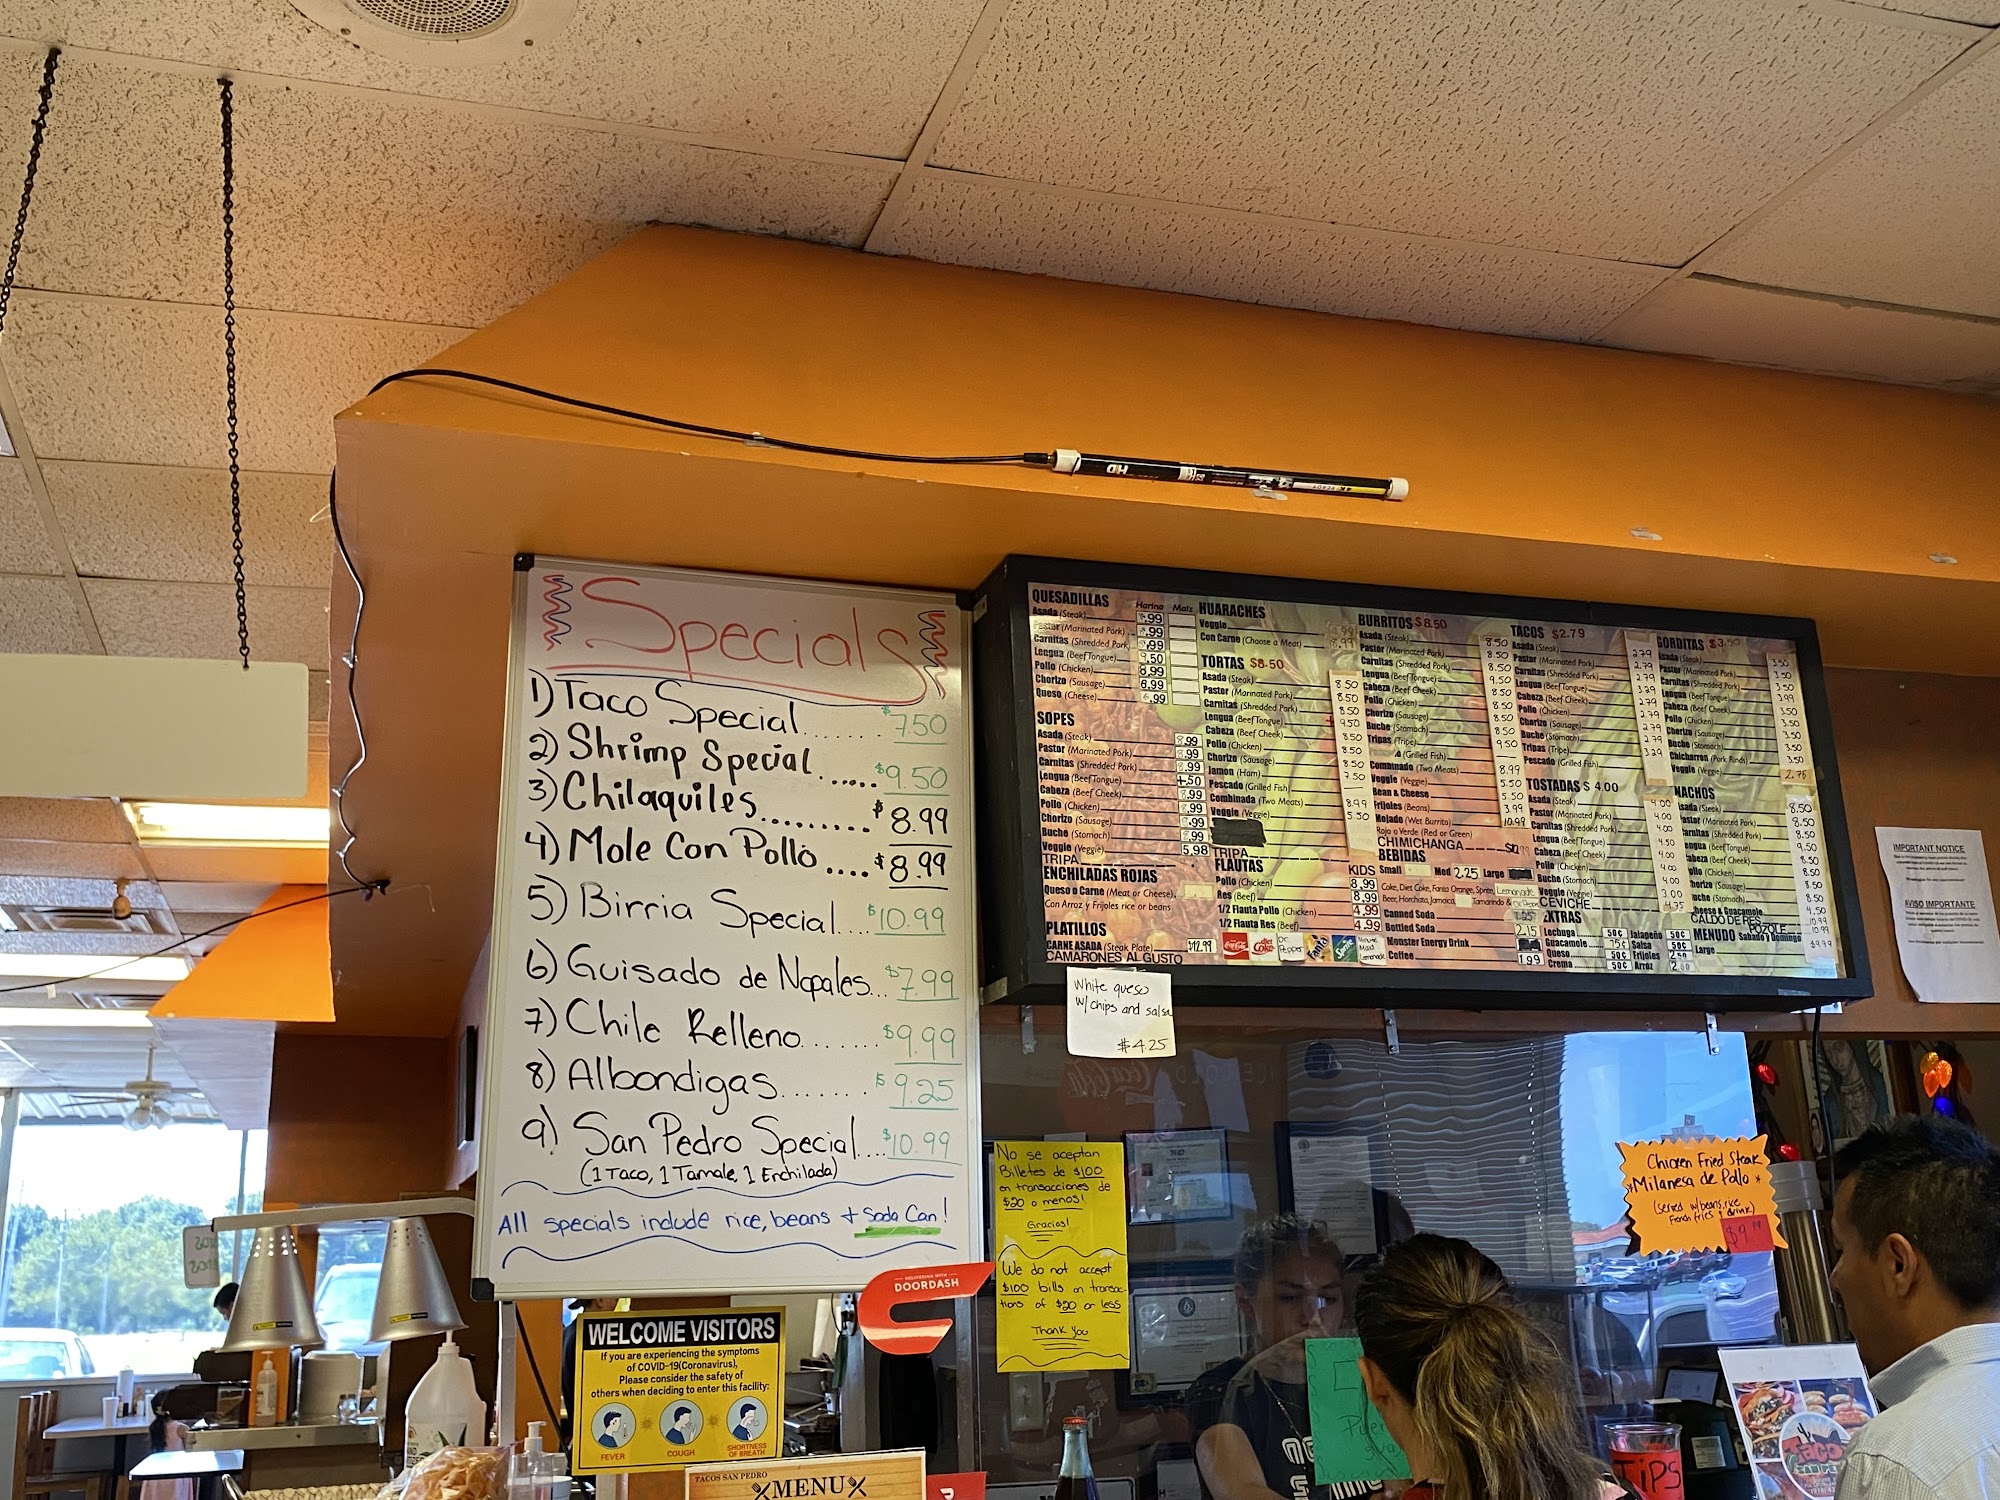 Specials
1) Taco Special........ $7.50
2) Shrimp Special..... $9.50
3) Chilaquiles......... $8.99
4) Mole Con Pollo.... $8.99
5) Birria Special.... $10.99
6) Guisado de Nopales... $7.99
7) Chile Relleno....... $9.99
8) Albondigas....... $9.25
9) San Pedro Special.... $10.99
(1 Taco, 1 Tamale, 1 Enchilada)
All specials include rice, beans + Soda Can!
QUESADILLAS Harina Maiz
Asada (Steak)
Pastor (Marinated Pork)
Carnitas (Shredded Pork)
Lengua (Beef Tongue) 9.50
Pollo (Chicken) 8.99
Chorizo (Sausage) 8.99
Queso (Cheese)
SOPES
Asada (Steak) 8.99
Pastor (Marinated Pork) 8.99
Carnitas (Shredded Pork) 8.99
Lengua (Beef Tongue) +.50
Cabeza (Beef Cheek) 8.99
Pollo (Chicken) 8.99
Chorizo (Sausage) 8.99
Buche (Stomach) 8.99
Veggie (Veggie) 5.98
TRIPA
ENCHILADAS ROJAS
Queso o Carne (Meat or Cheese)
Con Arroz y Frijoles rice or beans
PLATILLOS
CARNE ASADA (Steak Plate) $12.99
CAMARONES AL GUSTO
HUARACHES
Veggie
Con Carne (Choose a Meat)
TORTAS $8.50
Asada (Steak) 8.50
Pastor (Marinated Pork) 8.50
Carnitas (Shredded Pork) 8.50
Lengua (Beef Tongue) 9.50
Cabeza (Beef Cheek) 8.50
Pollo (Chicken) 8.50
Chorizo (Sausage) 8.50
Jamon (Ham) 7.50
Pescado (Grilled Fish)
Combinada (Two Meats) 8.99
Veggie (Veggie) 5.50
TRIPA
FLAUTAS
Pollo (Chicken) 8.99
Res (Beef) 8.99
1/2 Flauta Pollo (Chicken) 4.99
1/2 Flauta Res (Beef) 4.99
Coca-Cola
diet Coke
Dr Pepper
Fanta
Sprite
Minute Maid Lemonade
BURRITOS $8.50
Asada (Steak) 8.50
Pastor (Marinated Pork) 8.50
Carnitas (Shredded Pork) 8.50
Lengua (Beef Tongue) 9.50
Cabeza (Beef Cheek) 8.50
Pollo (Chicken) 8.50
Chorizo (Sausage) 8.50
Buche (Stomach) 8.50
Tripas (Tripe) 9.50
(Grilled Fish)
Combinado (Two Meats) 8.99
Veggie (Veggie) 5.50
Bean & Cheese 5.50
Frijoles (Beans) 3.99
Mojado (Wet Burrito) 10.99
Rojo o Verde (Red or Green)
CHIMICHANGA
KIDS
BEBIDAS
Small Med 2.25 Large
Coke, Diet Coke, Fanta Orange, Sprite, Lemonade
Beer, Horchata, Jamaica, Tamarindo &
Canned Soda 1.25
Bottled Soda 2.15
Monster Energy Drink
Coffee 1.99
TACOS $2.79
Asada (Steak) 2.79
Pastor (Marinated Pork) 2.79
Carnitas (Shredded Pork) 2.79
Lengua (Beef Tongue) 3.29
Cabeza (Beef Cheek) 2.79
Pollo (Chicken) 2.79
Chorizo (Sausage) 2.79
Buche (Stomach) 2.79
Tripas (Tripe) 3.29
Pescado (Grilled Fish)
TOSTADAS $ 4.00
Asada (Steak) 4.00
Pastor (Marinated Pork) 4.00
Carnitas (Shredded Pork) 4.00
Lengua (Beef Tongue) 4.50
Cabeza (Beef Cheek) 4.00
Pollo (Chicken) 4.00
Buche (Stomach) 4.00
Veggie (Veggie) 3.00
CEVICHE 4.75
EXTRAS
Lechuga 50¢ Jalapeño 50¢
Guacamole 75¢ Salsa 50¢
Queso 50¢ Frijoles 2.50
Crema 50¢ Arroz 2.50
GORDITAS $3.50
Asada (Steak) 3.50
Pastor (Marinated Pork) 3.50
Carnitas (Shredded Pork) 3.50
Lengua (Beef Tongue) 3.99
Cabeza (Beef Cheek) 3.50
Pollo (Chicken) 3.50
Chorizo (Sausage) 3.50
Buche (Stomach) 3.50
Chicharron (Pork Rinds) 3.50
Veggie (Veggie) 2.75
NACHOS
Asada (Steak) 8.50
Pastor (Marinated Pork) 8.50
Carnitas (Shredded Pork) 8.50
Lengua (Beef Tongue) 9.50
Cabeza (Beef Cheek) 8.50
Pollo (Chicken) 8.50
Chorizo (Sausage) 8.50
Buche (Stomach) 8.50
Cheese & Guacamole 4.50
CALDO DE RES 10.99
POZOLE 10.99
MENUDO Sabado y Domingo
Large $9.99
White queso
w/ chips and salsa
$4.25
No se aceptan
Billetes de $100
en transacciones de
$20 o menos!
Gracias!
We do not accept
$100 bills on transac-
tions of $20 or less
Thank you
Chicken Fried Steak
*Milanesa de Pollo *
(served w/beans, rice
French fries & drink)
$9.99
IMPORTANT NOTICE
AVISO IMPORTANTE
DELIVERING WITH
DOORDASH
WELCOME VISITORS
If you are experiencing the symptoms
of COVID-19(Coronavirus),
Please consider the safety of
others when deciding to enter this facility:
FEVER
COUGH
SHORTNESS
OF BREATH
TACOS SAN PEDRO
MENU
TIPS
Tacos
SAN PEDRO
HD